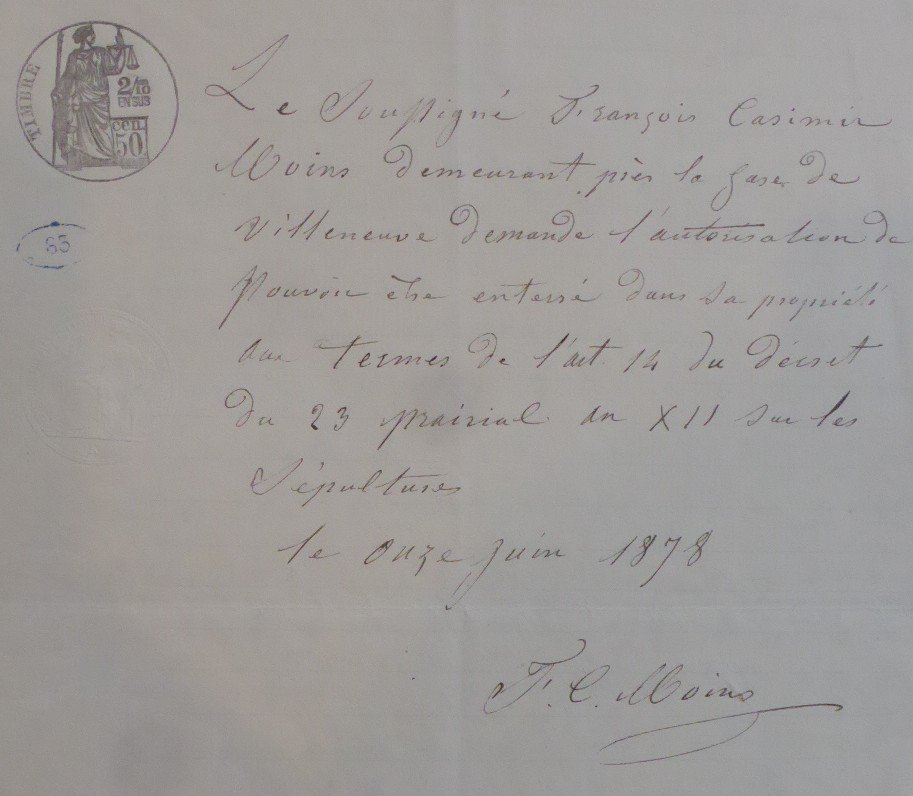 TIMBRE
2/10
EN SUS
cen.
50
83
Le Soussigné François Casimir
Moins demeurant près la gare de
Villeneuve demande l'autorisation de
Pouvoir être enterré dans sa propriété
aux Termes de l'art. 14 du décret
du 23 prairial an XII sur les
Sépultures
le onze Juin 1878
F. C. Moins